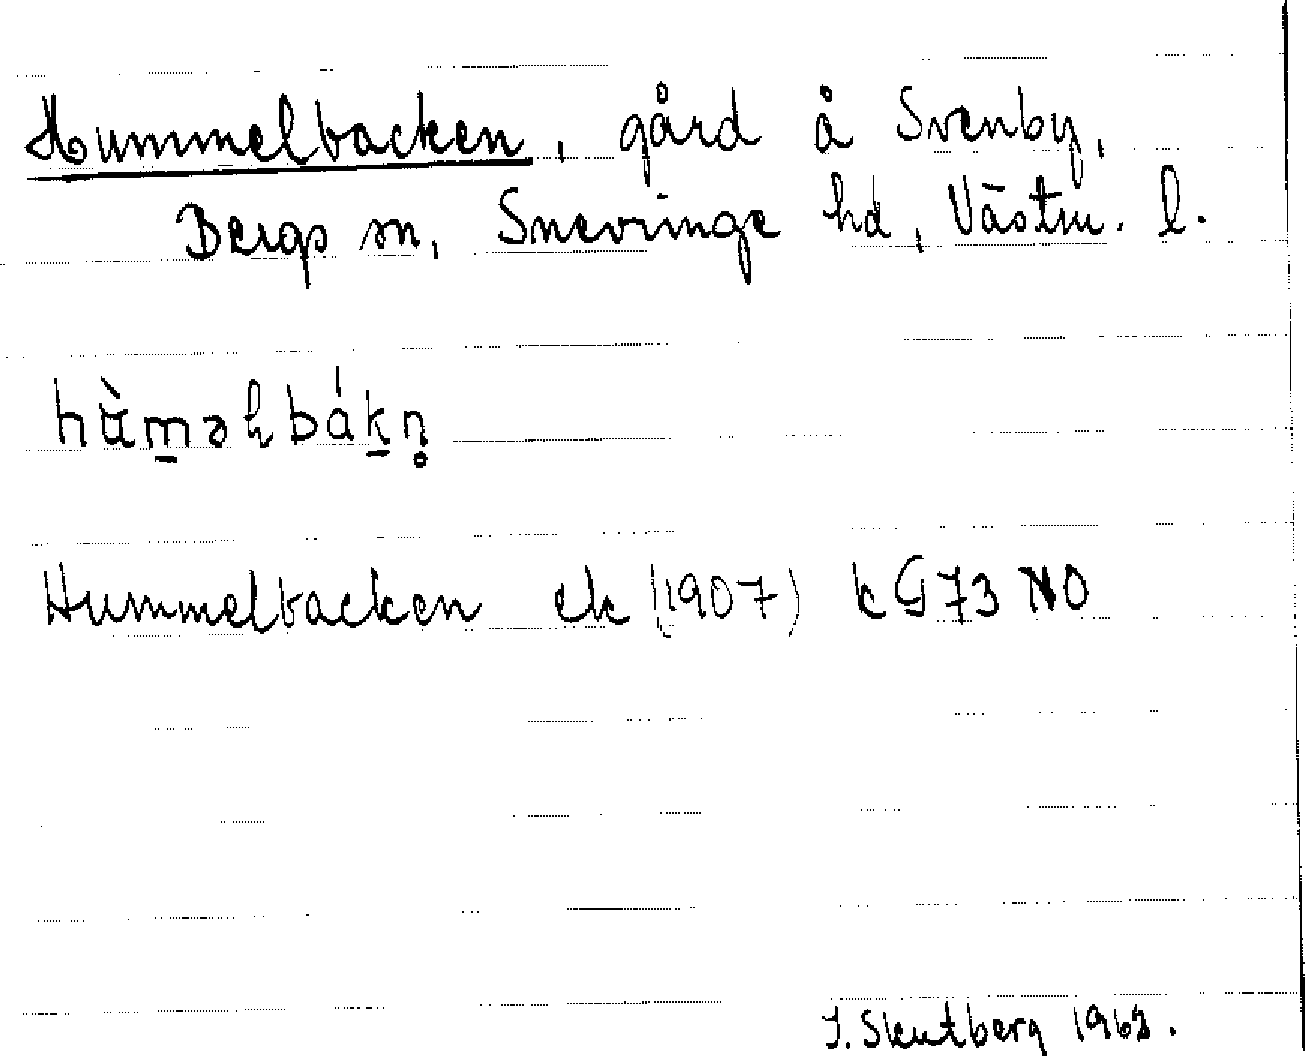 Hummelbacken, gård å Svenby,
Bergs sn, Snevringe hd, Västm. l.
Hummelbacken ek (1907) kG73 NO
I. Skutberg 1963.